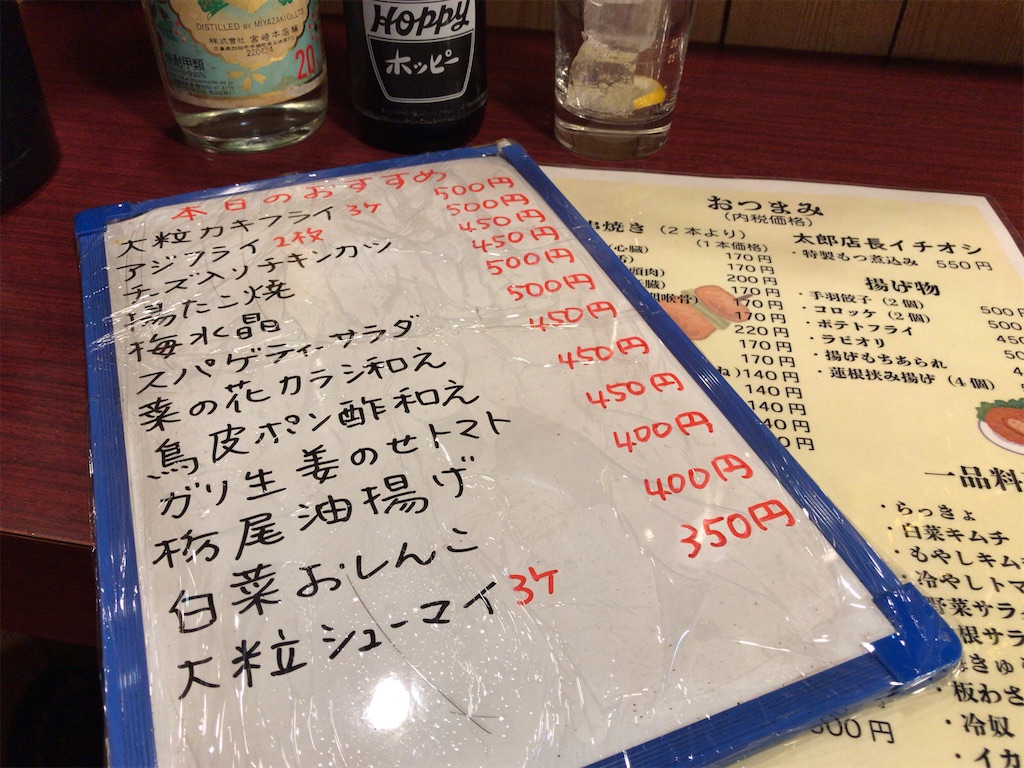 DISTILLED BY MIYAZAKI CO., LTD.
株式会社 宮崎本店醸
220434
焼酎甲類
20
HOPPY
ホッピー
本日のおすすめ
大粒カキフライ 3ケ 500円
アジフライ 2枚 500円
チーズ入りチキンカツ 450円
揚たこ焼 450円
梅水晶 500円
スパゲティーサラダ 500円
菜の花カラシ和え 450円
鳥皮ポン酢和え 450円
ガリ生姜のせトマト 450円
栃尾油揚げ 400円
白菜おしんこ 400円
大粒シューマイ 3ケ 350円
おつまみ
(内税価格)
串焼き (2本より)
(1本価格)
心臓) 170円
170円
頭肉) 200円
170円
咽喉骨) 170円
220円
170円
170円
ね) 140円
140円
140円
0円
太郎店長イチオシ
・特製もつ煮込み 550円
揚げ物
・手羽餃子 (2個) 500
・コロッケ (2個) 500
・ポテトフライ 450
・ラビオリ
・揚げもちあられ
・蓮根挟み揚げ (4個)
一品料
・らっきょ
・白菜キムチ
・もやしキム
・冷やしトマ
野菜サラ
根サラ
きゅ
・板わさ
・冷奴
・イカ
500円